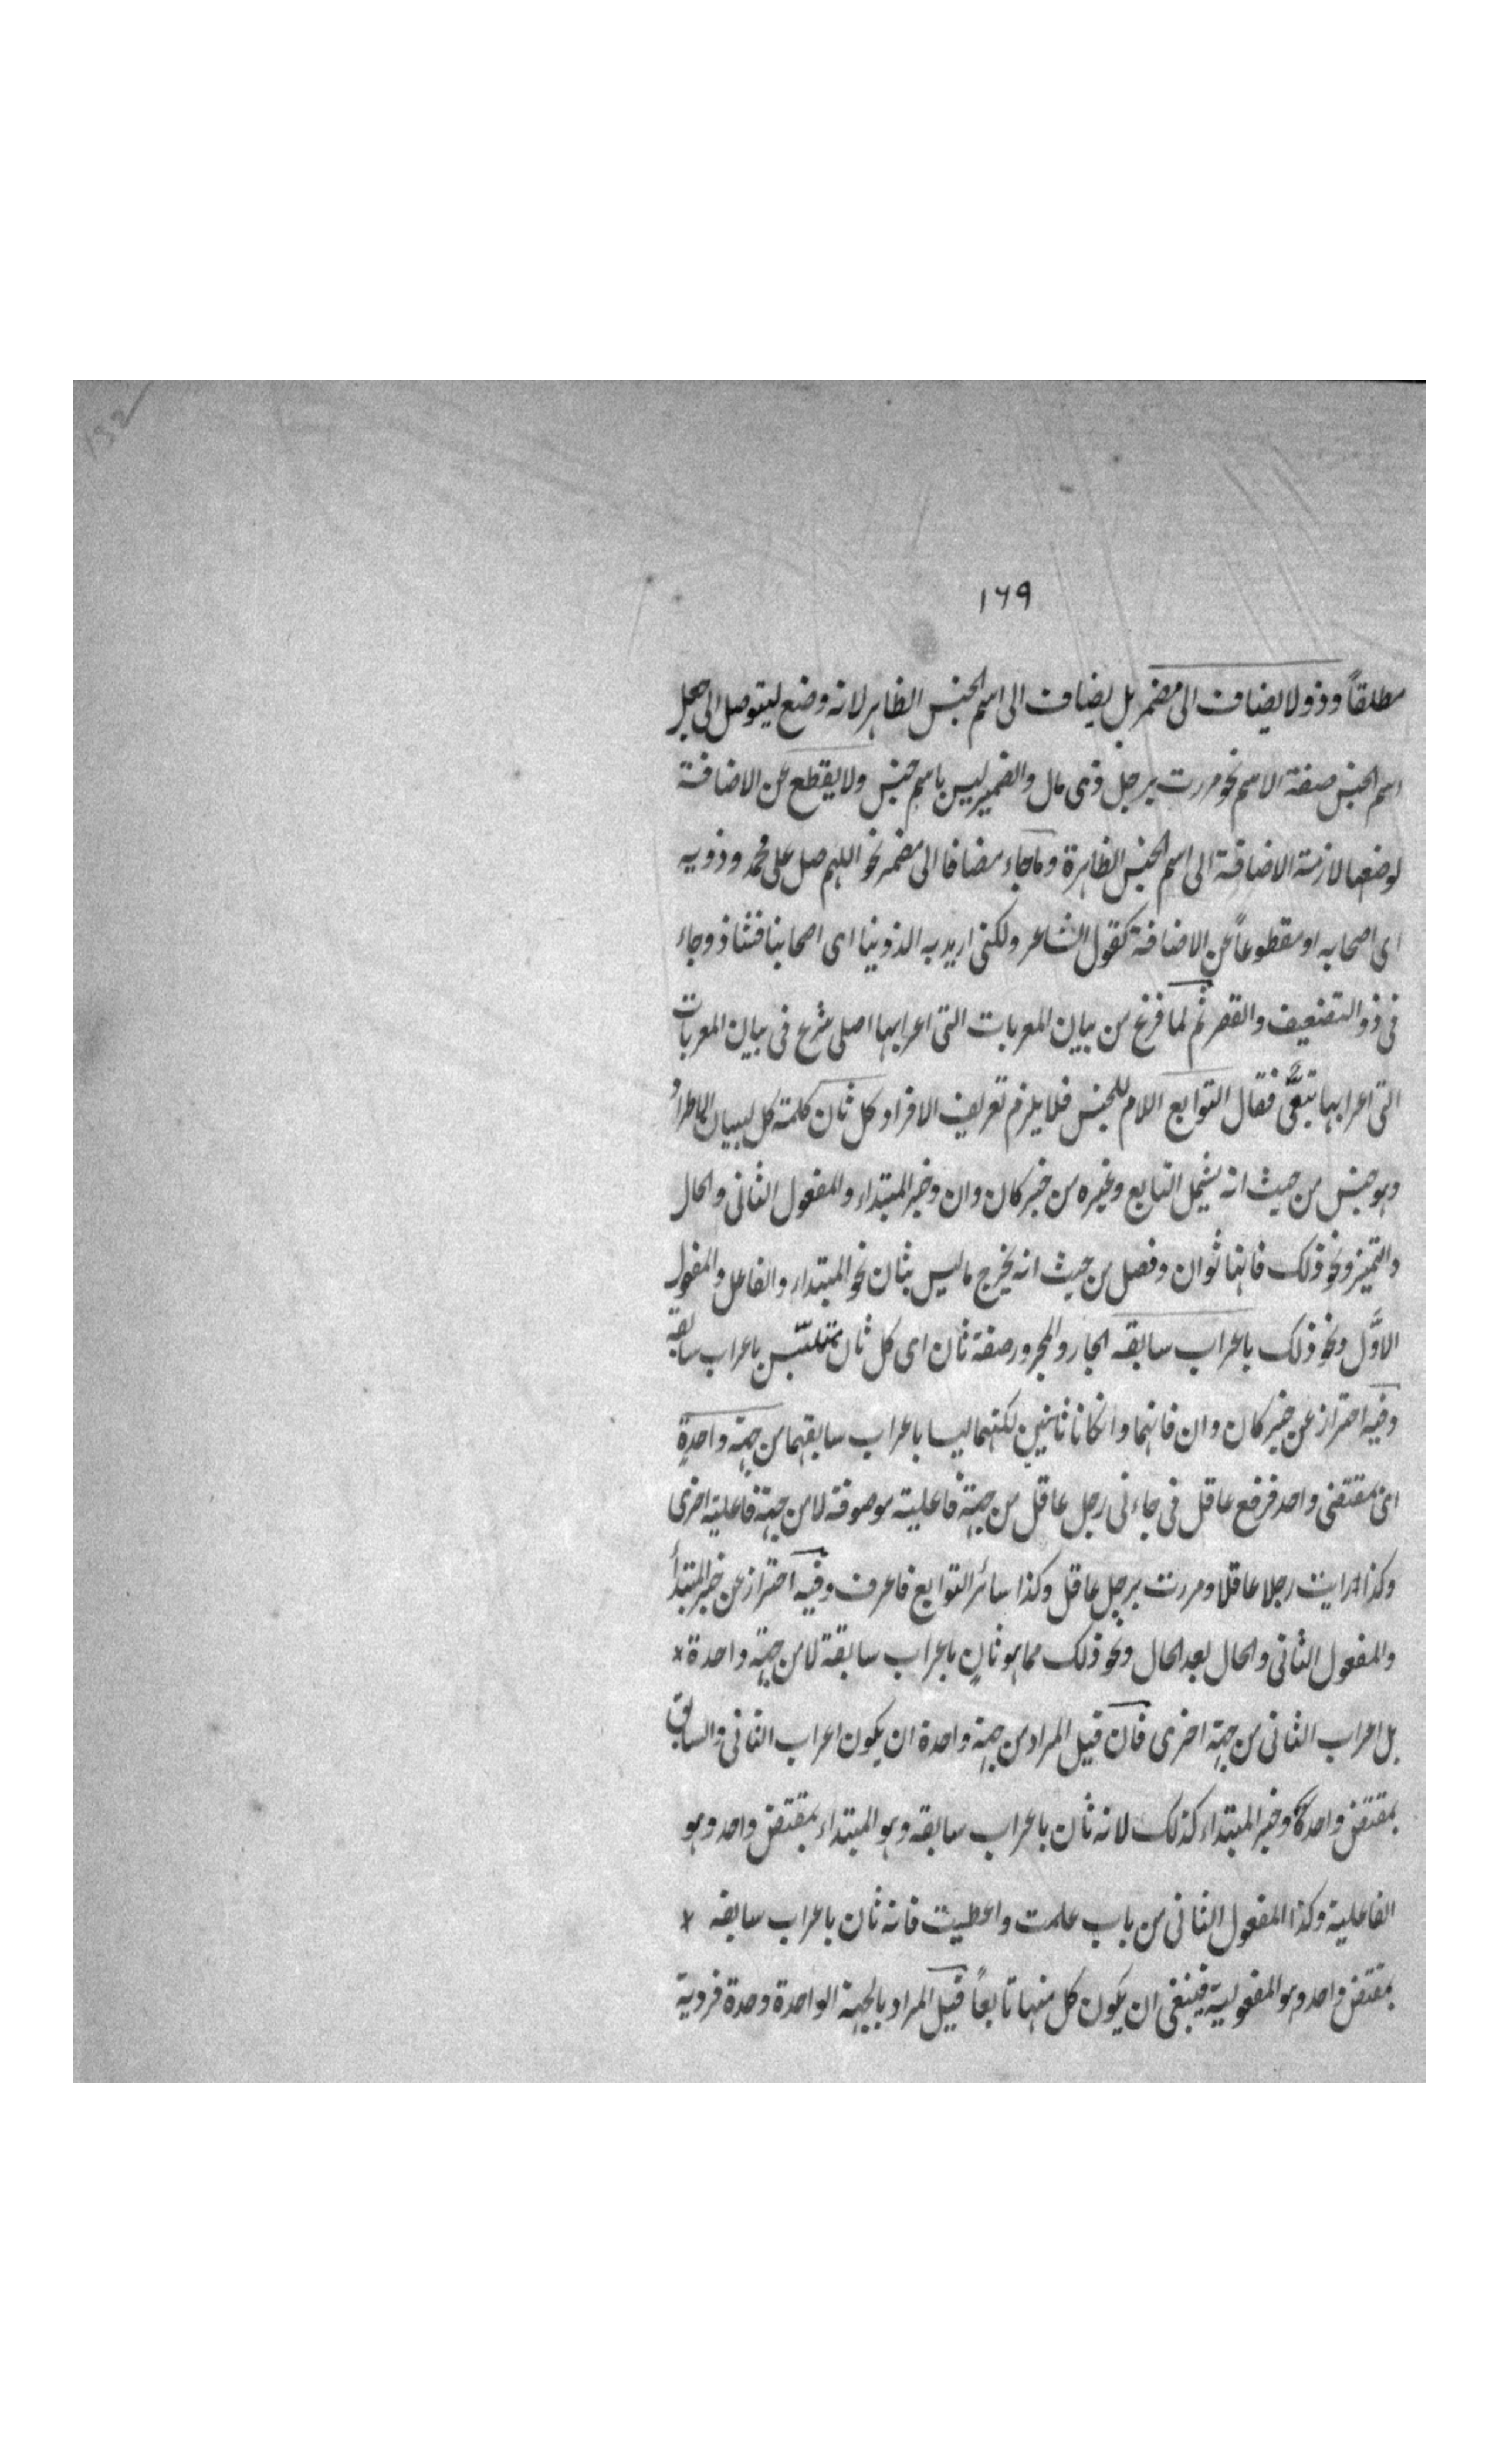 ١٦٩
مطلقاً وذو لا يضاف الى مضمر بل يضاف الى اسم الجنس الظاهر لانه وضع ليتوصل الى جعل
اسم الجنس صفة الاسم نحو مررت برجل ذى مال والضمير ليس باسم جنس ولا يقطع عن الاضافة
لوضعها لازمة الاضافة الى اسم الجنس الظاهرة وما جاء مضافا الى مضمر نحو اللهم صل على محمد وذويه
اى اصحابه او مقطوعاً عن الاضافة كقول الشاعر ولكنى اريد به الذوينا اى اصحابنا فشاذ وجاء
فى ذو التضعيف والقصر ثم لما فرغ من بيان المعربات التى اعرابها اصلى شرح فى بيان المعربات
التى اعرابها تبعىّ فقال التوابع اللام للجنس فلا يلزم تعريف الافراد كل ثان كلمة كل لبيان الاطراد
وهو جنس من حيث انه يشمل التابع وغيره من خبر كان وان وخبر المبتداء والمفعول الثانى والحال
والتميز ونحو ذلك فانها ثوان وفصل من حيث انه يخرج ما ليس بثان نحو المبتداء والفاعل والمفعول
الاوّل ونحو ذلك باعراب سابقه الجار والمجرور صفة ثان اى كل ثان متلبّس باعراب سابقه
وفيه احتراز عن خبر كان وان فانهما وانكانا ثانيين لكنهما ليسا باعراب سابقهما من جهة واحدة
اى مقتضى واحد فرفع عاقل فى جاءنى رجل عاقل من جهة فاعلية موصوفه لا من جهة فاعلية اخرى
وكذا رايت رجلا عاقلا ومررت برجل عاقل وكذا سائر التوابع فاعرف وفيه احتراز عن خبر المبتدأ
والمفعول الثانى والحال بعد الحال ونحو ذلك مما هو ثانٍ باعراب سابقة لا من جهة واحدة *
بل اعراب الثانى من جهة اخرى فان قيل المراد من جهة واحدة ان يكون اعراب الثانى والسابق
بمقتض واحد وخبر المبتداء كذلك لانه ثان باعراب سابقه وهو المبتداء بمقتض واحد وهو
الفاعلية وكذا المفعول الثانى من باب علمت واعطيت فانه ثان باعراب سابقه *
بمقتض واحد وهو المفعولية فينبغى ان يكون كل منها تابعاً قيل المراد بالجهة الواحدة وحدة فردية